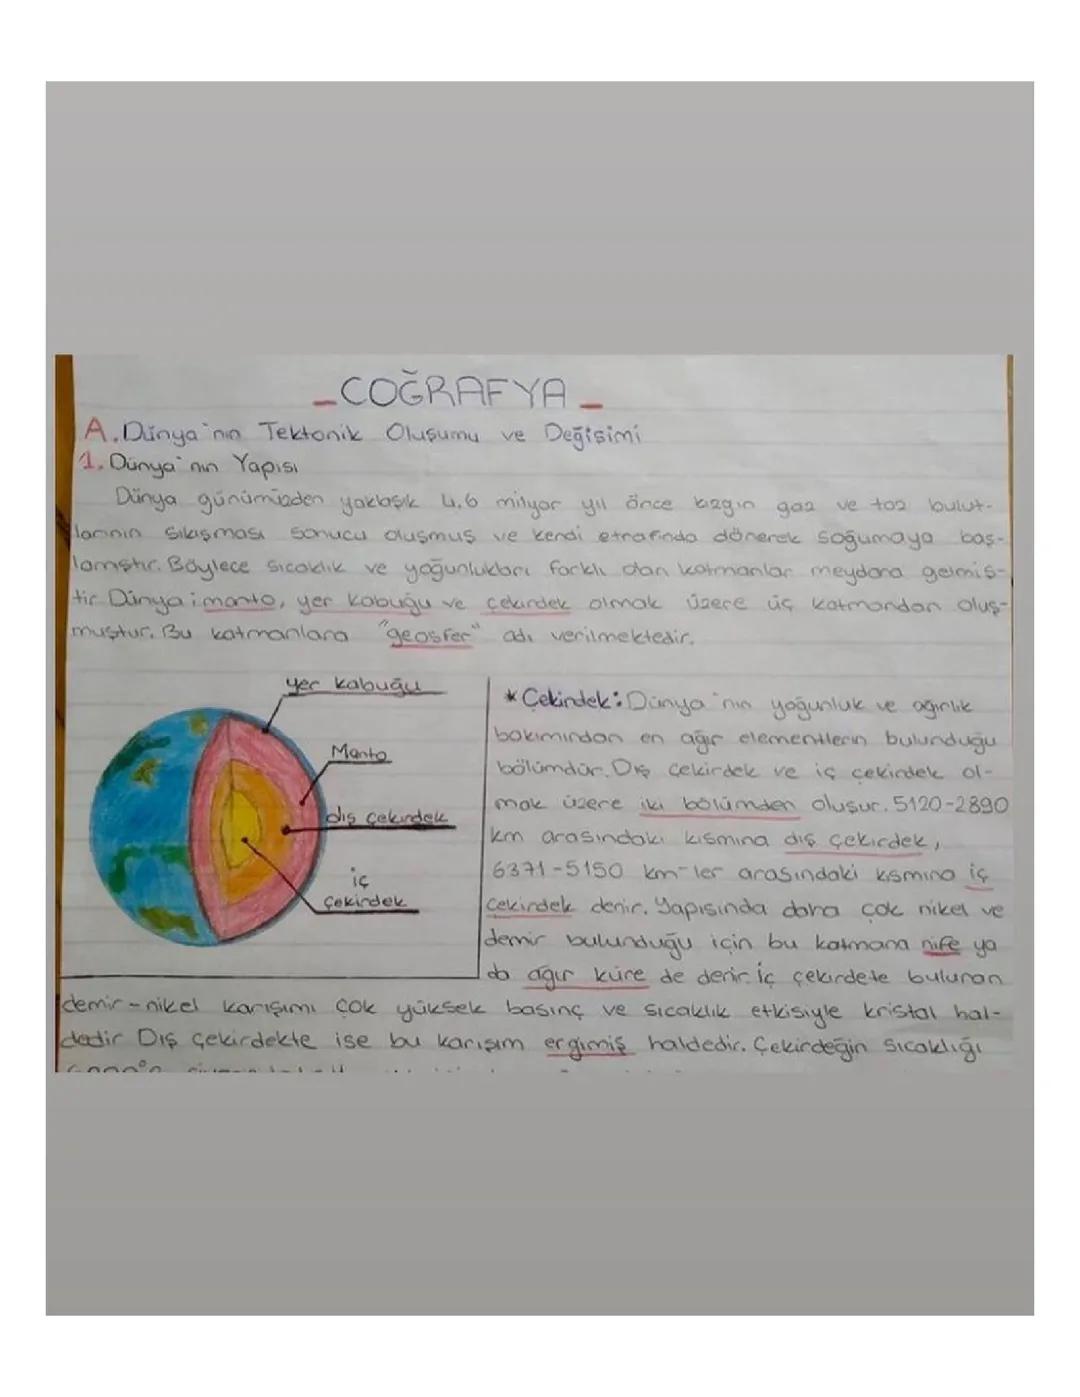 COĞRAFYA
A. Dünya'nın Tektonik Oluşumu ve Değişimi
1. Dünya'nın Yapısı
Dünya günümüzden yaklaşık 4.6 milyar yıl önce kızgın gaz ve toz bulut-
larının sıkışması sonucu oluşmuş ve kendi etrafında dönerek soğumaya baş-
lamıştır. Böylece sıcaklık ve yoğunlukları farklı olan katmanlar meydana gelmiş-
tir. Dünya; manto, yer kabuğu ve çekirdek olmak üzere üç katmandan oluş-
muştur. Bu katmanlara "geosfer" adı verilmektedir.
yer kabuğu
Manto
dış çekirdek
iç
çekirdek
* Çekirdek: Dünya'nın yoğunluk ve ağırlık
bakımından en ağır elementlerin bulunduğu
bölümdür. Dış çekirdek ve iç çekirdek ol-
mak üzere iki bölümden oluşur. 5120-2890
km arasındaki kısmına dış çekirdek,
6371-5150 km-ler arasındaki kısmına iç
çekirdek denir. Yapısında daha çok nikel ve
demir bulunduğu için bu katmana nife ya
da ağır küre de denir. İç çekirdete bulunan
demir-nikel karışımı çok yüksek basınç ve sıcaklık etkisiyle kristal hal-
dedir Dış çekirdekte ise bu karışım ergimiş haldedir. Çekirdeğin sıcaklığı